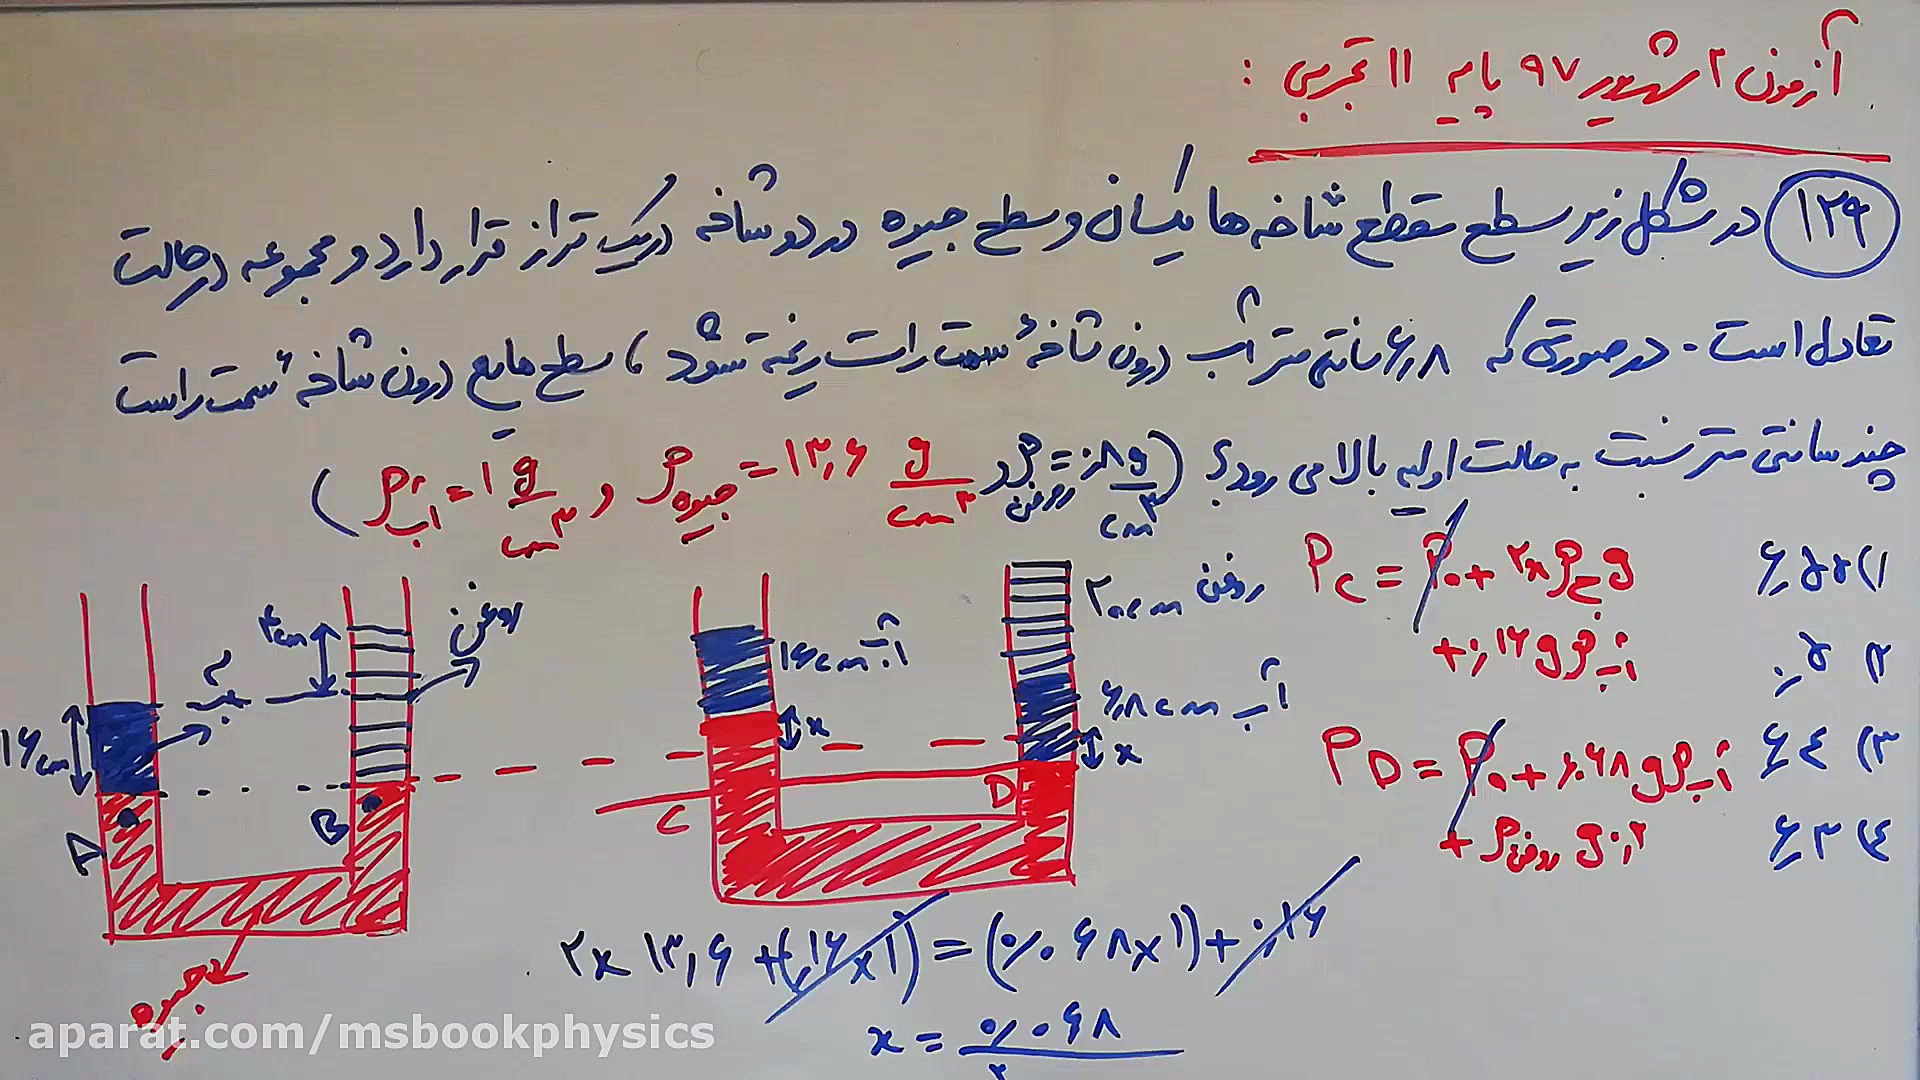 آزمون ۲ شهریور ۹۷ پایه ۱۱ تجربی :
۱۲۶) در شکل زیر سطح مقطع شاخه‌ها یکسان و سطح جیوه در دو شاخه در یک تراز قرار دارد و مجموعه در حالت
تعادل است - در صورتی که ۶٫۸ سانتی متر آب درون شاخهٔ سمت راست ریخته شود ، سطح مایع درون شاخهٔ سمت راست
چند سانتی متر نسبت به حالت اولیه بالا می رود؟ (ρروغن = ۰٫۸ g/cm³ و ρجیوه = ۱۳٫۶ g/cm³ و ρآب = ۱ g/cm³)
۱) ۶٫۵۵
۲) ۰٫۵
۳) ۶٫۴
۴) ۶٫۳
PC = P₀ + ۲xρج g
+ ۰٫۱۶ g ρآب
PD = P₀ + ۰٫۰۶۸ g ρآب
+ ρروغن g ۰٫۲
۴cm
روغن
آب
۱۶cm
A
B
جیوه
۱۶cm آب
x
C
۲۰cm روغن
۶٫۸cm آب
x
D
۲x ۱۳٫۶ + (۰٫۱۶ × ۱) = (۰٫۰۶۸ × ۱) + ۰٫۱۶
x = ۰٫۰۶۸
aparat.com/msbookphysics